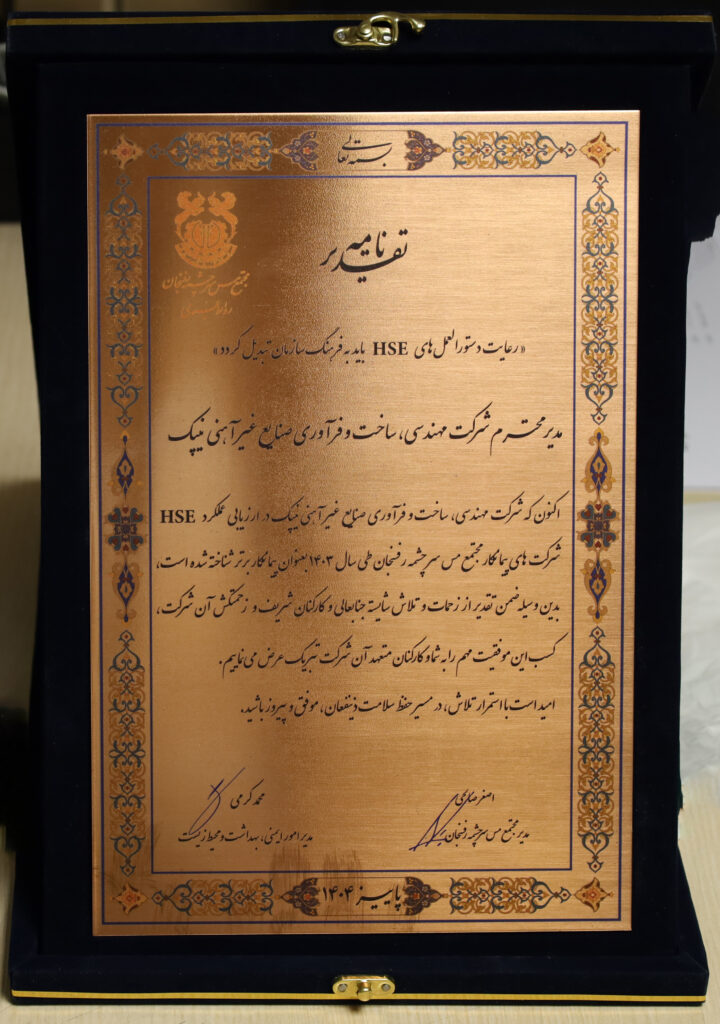 بسمه تعالی
تقدیر نامه
مجتمع مس سرچشمه رفسنجان
روابط عمومی
«رعایت دستورالعمل های HSE باید به فرهنگ سازمان تبدیل گردد»
مدیر محترم شرکت مهندسی، ساخت و فرآوری صنایع غیر آهنی نیپک
اکنون که شرکت مهندسی، ساخت و فرآوری صنایع غیر آهنی نیپک در ارزیابی عملکرد HSE
شرکت های پیمانکار مجتمع مس سرچشمه رفسنجان طی سال ۱۴۰۳ بعنوان پیمانکار برتر شناخته شده است،
بدین وسیله ضمن تقدیر از زحمات و تلاش شایسته جنابعالی و کارکنان شریف و زحمتکش آن شرکت،
کسب این موفقیت مهم را به شما و کارکنان متعهد آن شرکت تبریک عرض می نماییم.
امید است با استمرار تلاش، در مسیر حفظ سلامت ذینفعان، موفق و پیروز باشید.
اصغر
مدیر مجتمع مس سرچشمه رفسنجان
محمد کرمی
مدیر امور ایمنی، بهداشت و محیط زیست
پاییز ۱۴۰۴